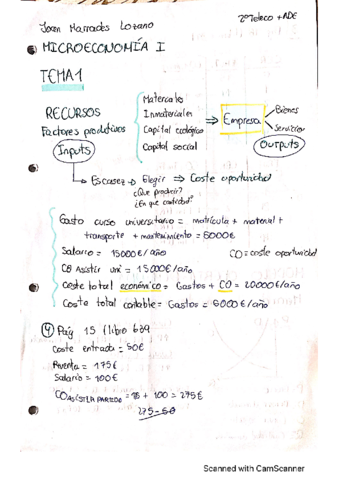 Joan Marrades Lozano
2ºTeleco + ADE
MICROECONOMÍA I
TEMA 1
RECURSOS
Factores produtivos
Inputs
Materiales
Inmateriales
Capital ecológico
Capital social
⇒ Empresa
Bienes
Servicios
Outputs
→ Escasez → Elegir ⇒ Coste oportunidad
¿Que producir?
¿En que cantidad?
Gasto curso universitario = matrícula + material +
transporte + mantenimiento = 5000€
Salario = 15000€/año
CO = coste oportunidad
CO Asistir uni = 15000€/año
Coste total económico = Gastos + CO = 20000€/año
Coste total contable = Gastos = 5000€/año
④ Pág 15 (libro
Coste entrada = 50€
Rventa = 175€
Salario = 100€
CO ASISTIR PARTIDO = + 100 = 275€
275-50
Scanned with CamScanner